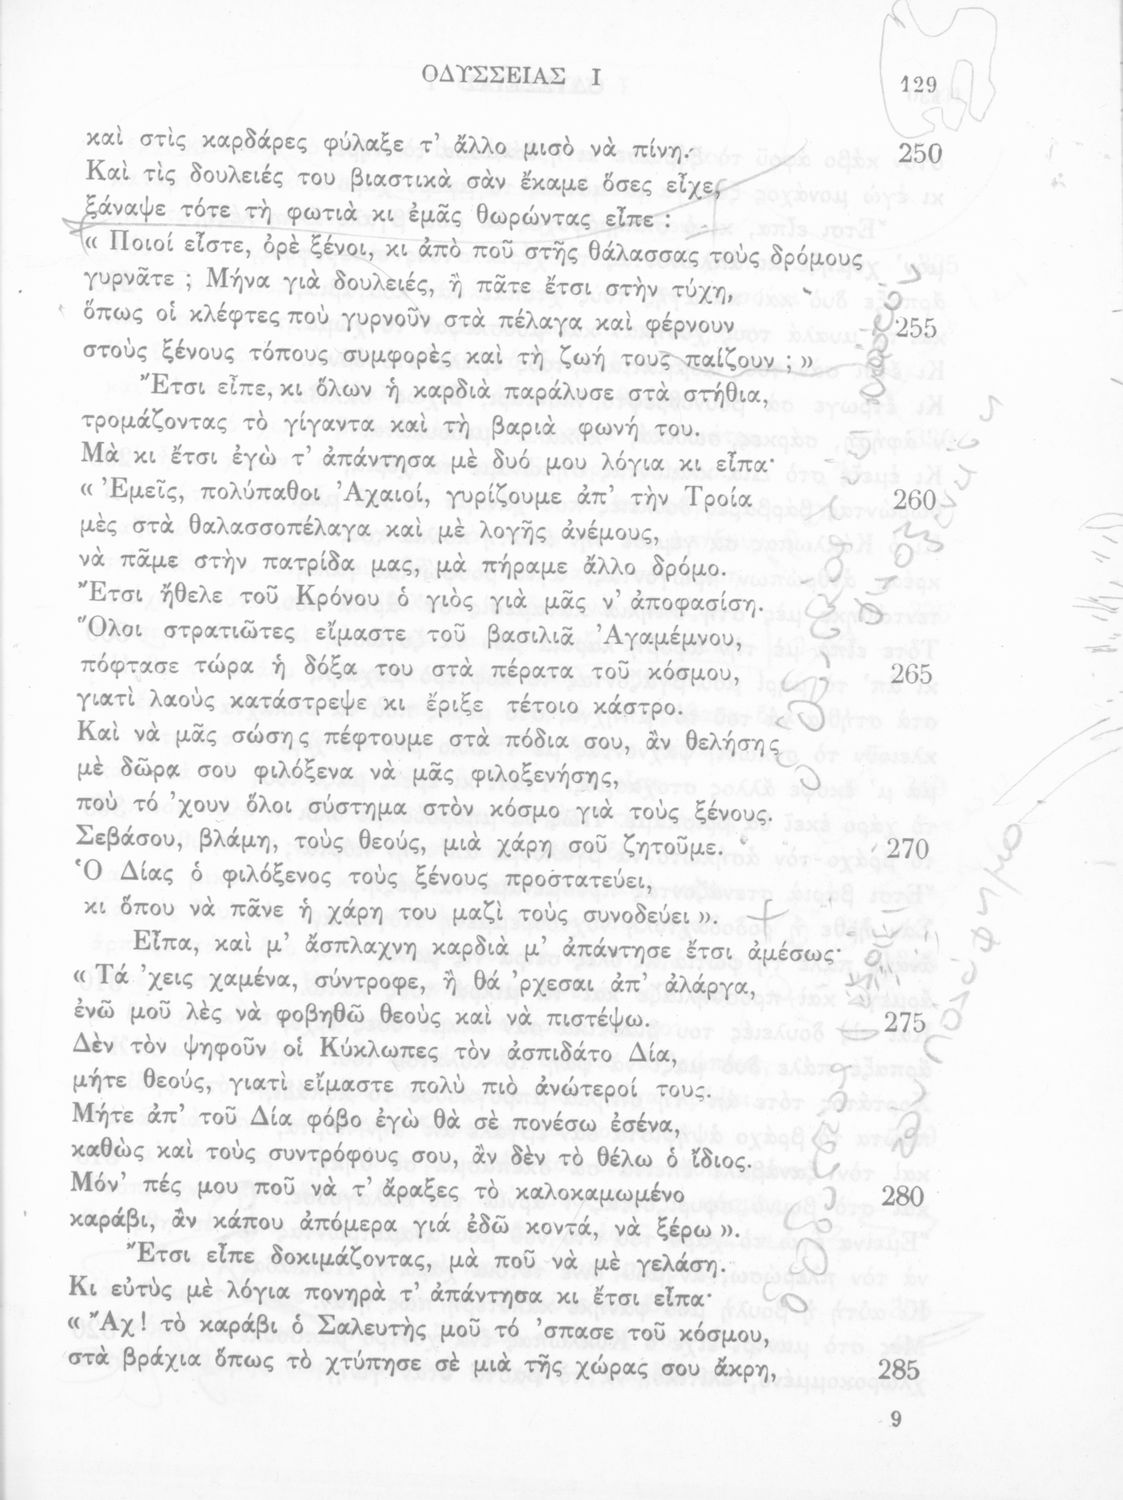 ΟΔΥΣΣΕΙΑΣ Ι
129
καὶ στὶς καρδάρες φύλαξε τ’ ἄλλο μισὸ νὰ πίνῃ. 250
Καὶ τὶς δουλειές του βιαστικὰ σὰν ἔκαμε ὅσες εἶχε,
ξάναψε τότε τὴ φωτιὰ κι ἐμᾶς θωρώντας εἶπε :
« Ποιοί εἶστε, ὀρὲ ξένοι, κι ἀπὸ ποῦ στῆς θάλασσας τοὺς δρόμους
γυρνᾶτε ; Μήνα γιὰ δουλειές, ἢ πᾶτε ἔτσι στὴν τύχη,
ὅπως οἱ κλέφτες ποὺ γυρνοῦν στὰ πέλαγα καὶ φέρνουν 255
στοὺς ξένους τόπους συμφορὲς καὶ τὴ ζωή τους παίζουν ; »
Ἔτσι εἶπε, κι ὅλων ἡ καρδιὰ παράλυσε στὰ στήθια,
τρομάζοντας τὸ γίγαντα καὶ τὴ βαριὰ φωνή του.
Μὰ κι ἔτσι ἐγὼ τ’ ἀπάντησα μὲ δυό μου λόγια κι εἶπα·
« Ἐμεῖς, πολύπαθοι Ἀχαιοί, γυρίζουμε ἀπ’ τὴν Τροία 260
μὲς στὰ θαλασσοπέλαγα καὶ μὲ λογῆς ἀνέμους,
νὰ πᾶμε στὴν πατρίδα μας, μὰ πήραμε ἄλλο δρόμο.
Ἔτσι ἤθελε τοῦ Κρόνου ὁ γιὸς γιὰ μᾶς ν’ ἀποφασίσῃ.
Ὅλοι στρατιῶτες εἴμαστε τοῦ βασιλιᾶ Ἀγαμέμνου,
πόφτασε τώρα ἡ δόξα του στὰ πέρατα τοῦ κόσμου, 265
γιατὶ λαοὺς κατάστρεψε κι ἔριξε τέτοιο κάστρο.
Καὶ νὰ μᾶς σώσῃς πέφτουμε στὰ πόδια σου, ἂν θελήσῃς
μὲ δῶρα σου φιλόξενα νὰ μᾶς φιλοξενήσῃς,
ποὺ τό ’χουν ὅλοι σύστημα στὸν κόσμο γιὰ τοὺς ξένους.
Σεβάσου, βλάμη, τοὺς θεούς, μιὰ χάρη σοῦ ζητοῦμε. 270
Ὁ Δίας ὁ φιλόξενος τοὺς ξένους προστατεύει,
κι ὅπου νὰ πᾶνε ἡ χάρη του μαζὶ τοὺς συνοδεύει ».
Εἶπα, καὶ μ’ ἄσπλαχνη καρδιὰ μ’ ἀπάντησε ἔτσι ἀμέσως·
« Τά ’χεις χαμένα, σύντροφε, ἢ θά ’ρχεσαι ἀπ’ ἀλάργα,
ἐνῶ μοῦ λὲς νὰ φοβηθῶ θεοὺς καὶ νὰ πιστέψω. 275
Δὲν τὸν ψηφοῦν οἱ Κύκλωπες τὸν ἀσπιδάτο Δία,
μήτε θεούς, γιατὶ εἴμαστε πολὺ πιὸ ἀνώτεροί τους.
Μήτε ἀπ’ τοῦ Δία φόβο ἐγὼ θὰ σὲ πονέσω ἐσένα,
καθὼς καὶ τοὺς συντρόφους σου, ἂν δὲν τὸ θέλω ὁ ἴδιος.
Μόν’ πές μου ποῦ νὰ τ’ ἄραξες τὸ καλοκαμωμένο 280
καράβι, ἂν κάπου ἀπόμερα γιά ἐδῶ κοντά, νὰ ξέρω ».
Ἔτσι εἶπε δοκιμάζοντας, μὰ ποῦ νὰ μὲ γελάσῃ.
Κι εὐτὺς μὲ λόγια πονηρὰ τ’ ἀπάντησα κι ἔτσι εἶπα·
« Ἄχ! τὸ καράβι ὁ Σαλευτὴς μοῦ τό ’σπασε τοῦ κόσμου,
στὰ βράχια ὅπως τὸ χτύπησε σὲ μιὰ τῆς χώρας σου ἄκρη, 285
9